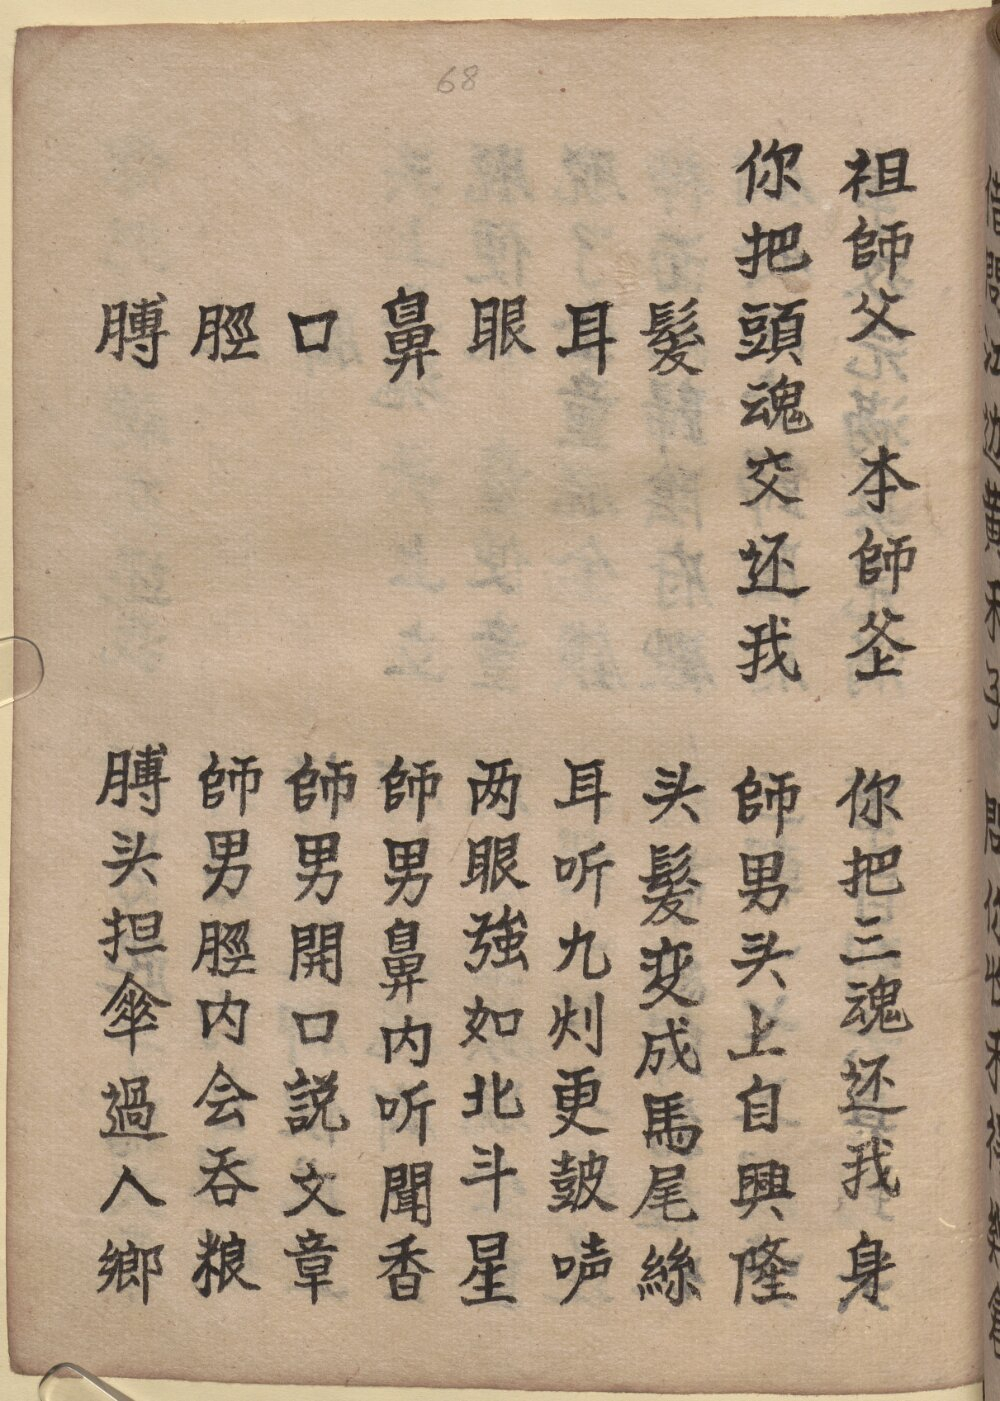 68
祖師父 本師爷 你把三魂还我身
你把頭魂交还我 師男头上自興隆
髪 头髪变成馬尾絲
耳 耳听九刈更鼓声
眼 两眼強如北斗星
鼻 師男鼻内听聞香
口 師男開口説文章
脛 師男脛内会吞粮
膊 膊头担傘過人鄉